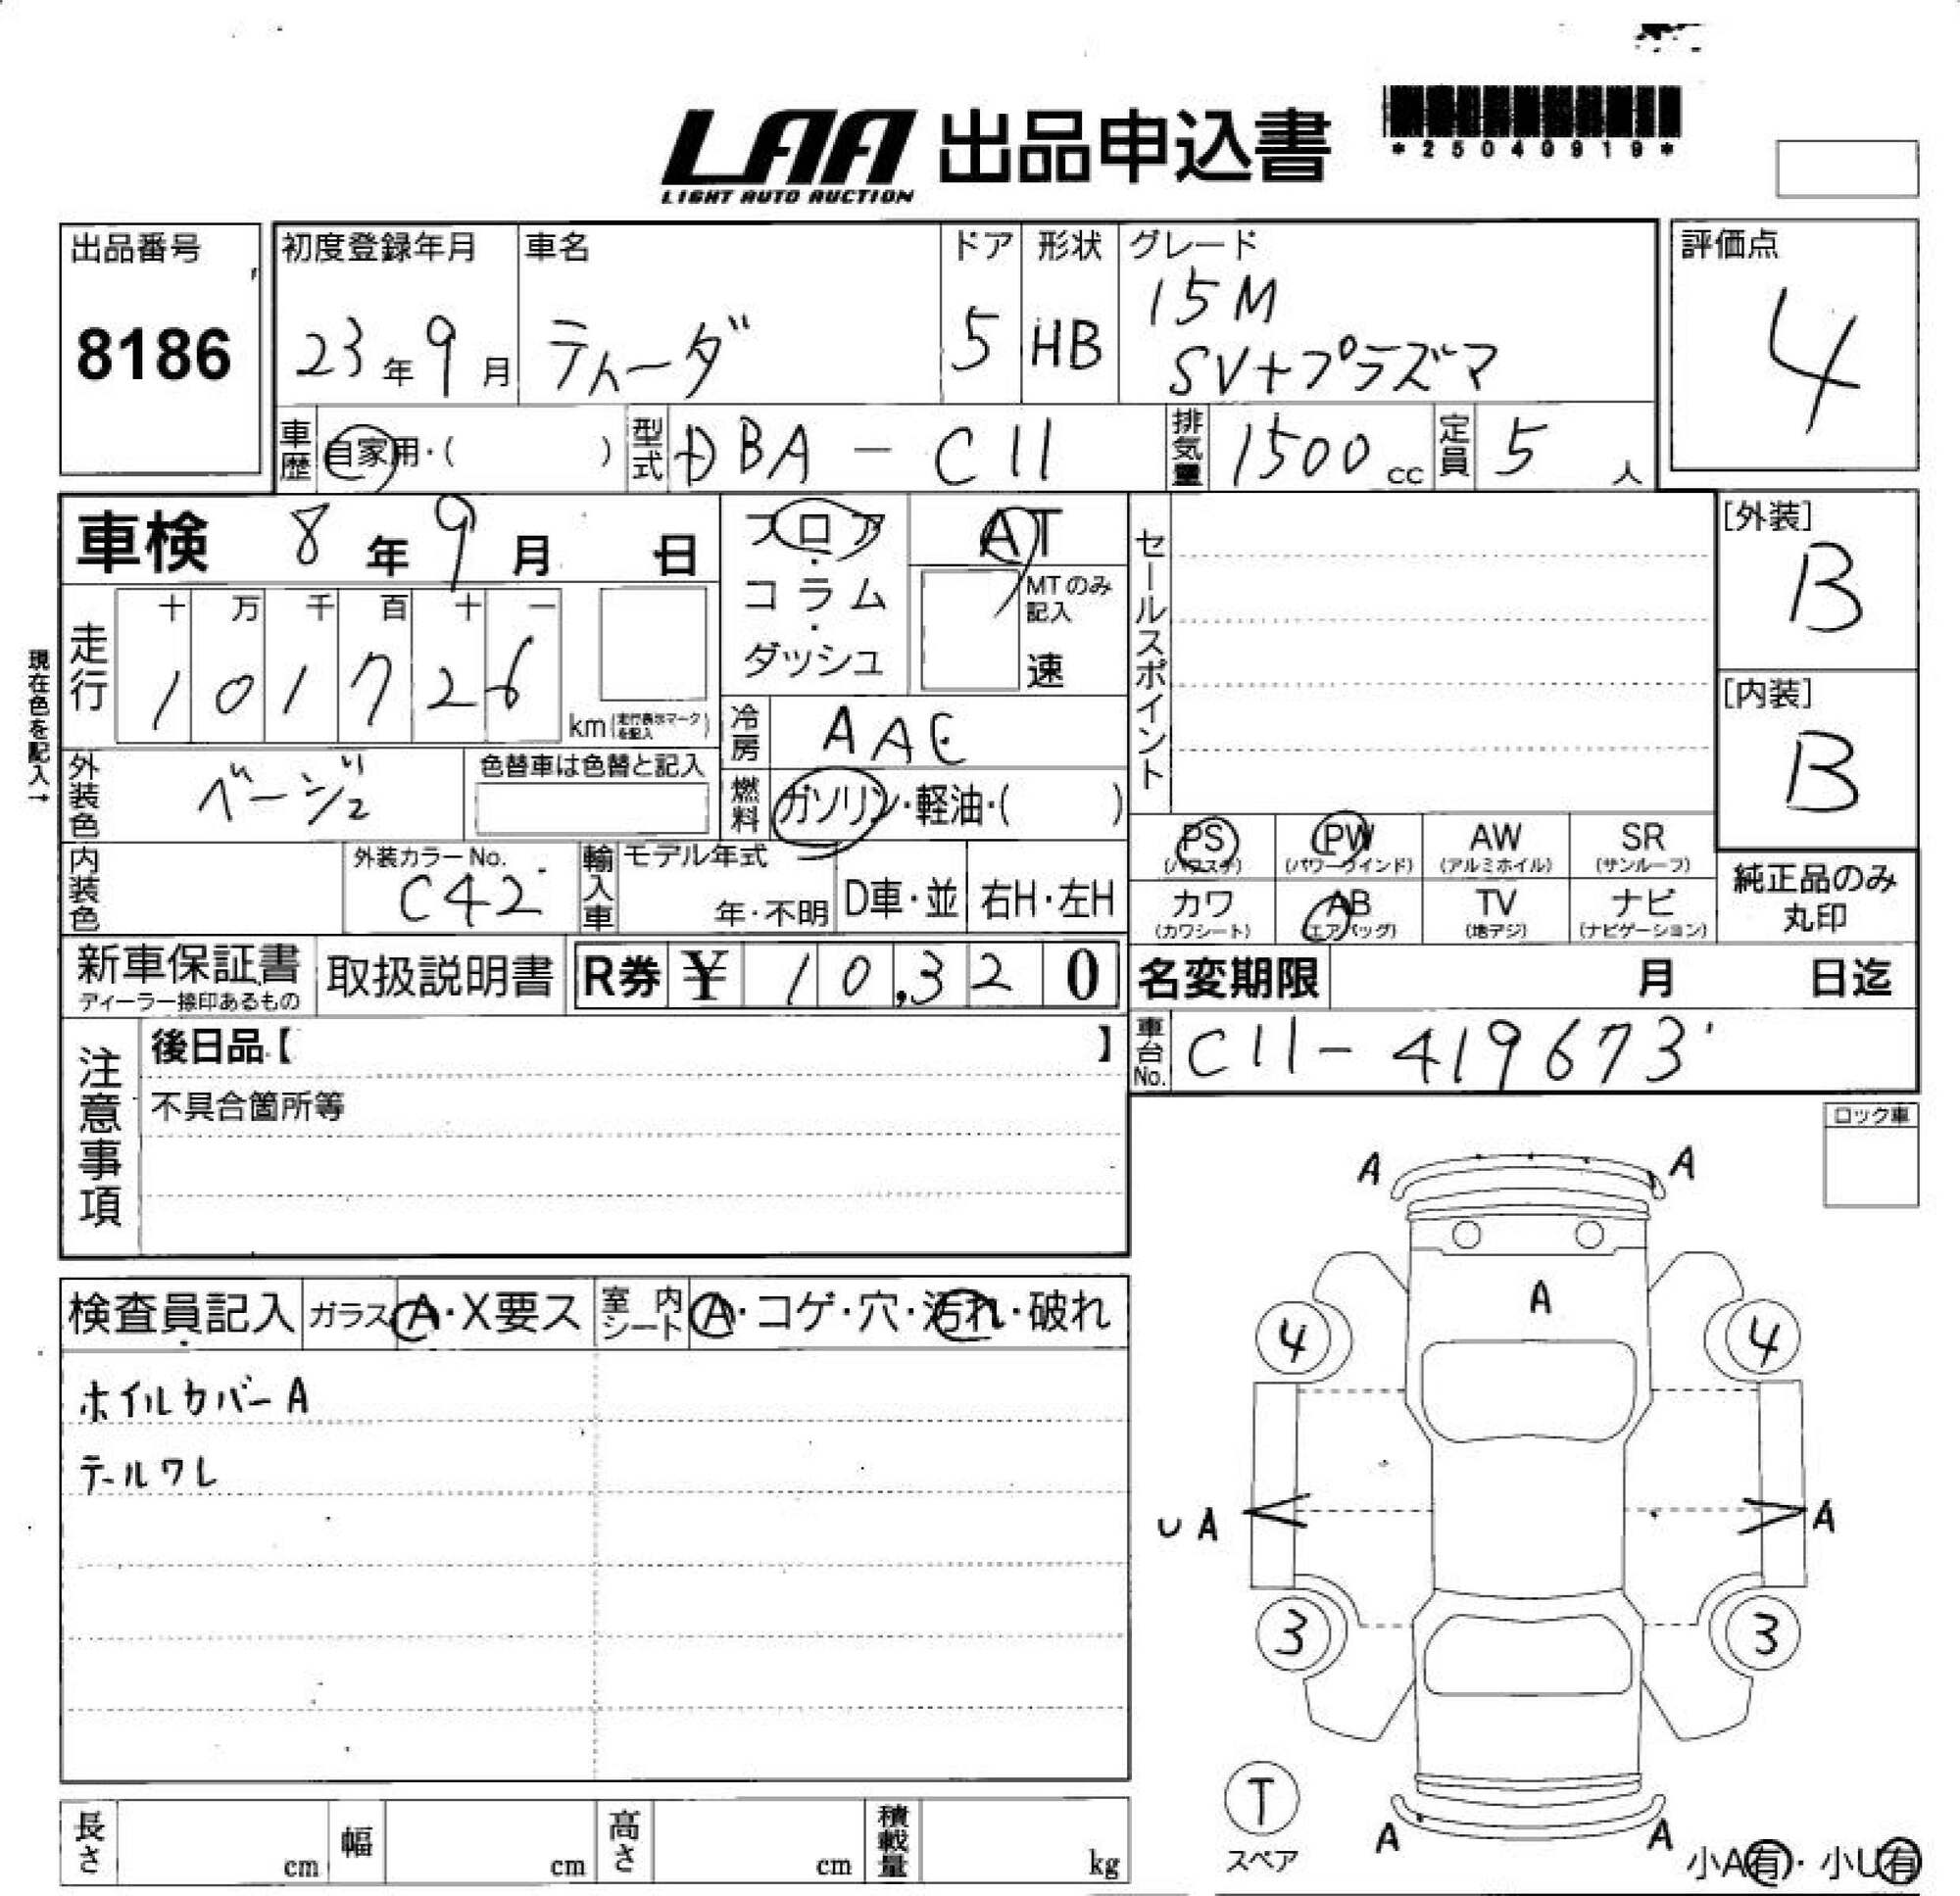 LAA 出品申込書
LIGHT AUTO AUCTION
*25040919*
出品番号
8186
初度登録年月
23年9月
車名
ティーダ
ドア
5
形状
HB
グレード
15M
SV+プラズマ
評価点
4
車歴 自家用・( )
型式 DBA-C11
排気量 1500cc
定員 5人
車検 8年9月 日
フロア・コラム・ダッシュ
AT
MTのみ記入
速
セールスポイント
[外装]
B
[内装]
B
現在色を記入→
走行
十 万 千 百 十 一
1 0 1 7 2 6
km(走行表示マークを記入)
冷房 AAC
外装色 ベージュ
色替車は色替と記入
燃料 ガソリン・軽油・( )
PS (パワステ)
PW (パワーウインド)
AW (アルミホイル)
SR (サンルーフ)
内装色
外装カラーNo.
C42
輸入車
モデル年式
年・不明
D車・並
右H・左H
カワ (カワシート)
AB (エアバッグ)
TV (地デジ)
ナビ (ナビゲーション)
純正品のみ丸印
新車保証書
取扱説明書
R券 ¥ 10,320
名変期限 月 日迄
車台No. C11-419673
注意事項
後日品【 】
不具合箇所等
ロック車
A A
A
4 4
U A A
3 3
A A
T
スペア
小A有・小U有
検査員記入
ガラス A・X要ス
室内シート A・コゲ・穴・汚れ・破れ
ホイルカバーA
テールワレ
長さ cm
幅 cm
高さ cm
積載量 kg